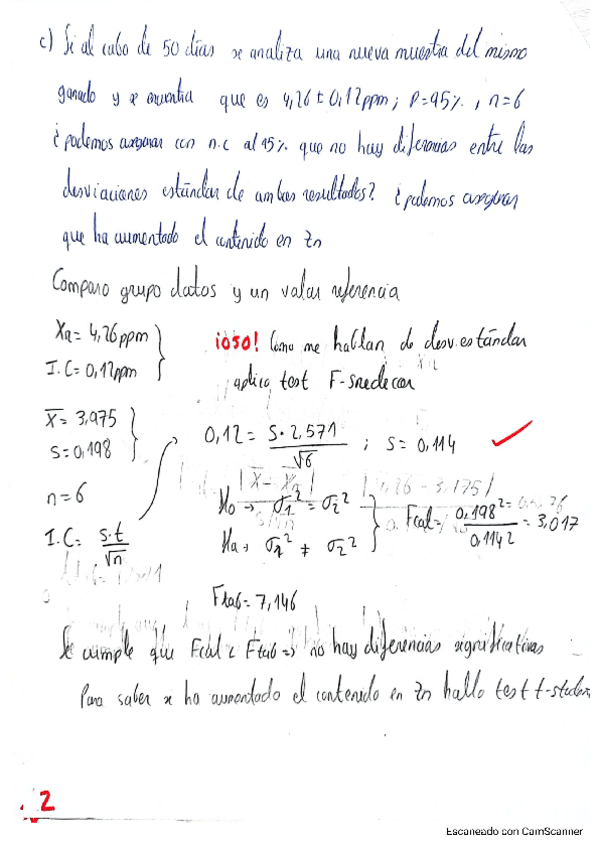 c) Si al cabo de 50 días se analiza una nueva muestra del mismo
ganado y se encuentra que es 4,26 ± 0,12ppm; P=95%, n=6
¿podemos asegurar con n.c al 95% que no hay diferencias entre las
desviaciones estándar de ambos resultados? ¿podemos asegurar
que ha aumentado el contenido en Zn
Comparo grupo datos y un valor referencia
XR = 4,26ppm
I.C = 0,12ppm
¡OSO! Como me hablan de desv.estándar
aplico test F-Snedecor
X̄ = 3,975
S = 0,198
n = 6
I.C = S·t / √n
0,12 = S·2,571 / √6 ; S = 0,114
Ho → σ1² = σ2²
Ha → σ1² ≠ σ2²
Fcal = 0,198² / 0,114² = 3,017
Ftab = 7,146
Se cumple que Fcal < Ftab => no hay diferencias significativas
Para saber si ha aumentado el contenido en Zn hallo test t-student
2
Escaneado con CamScanner